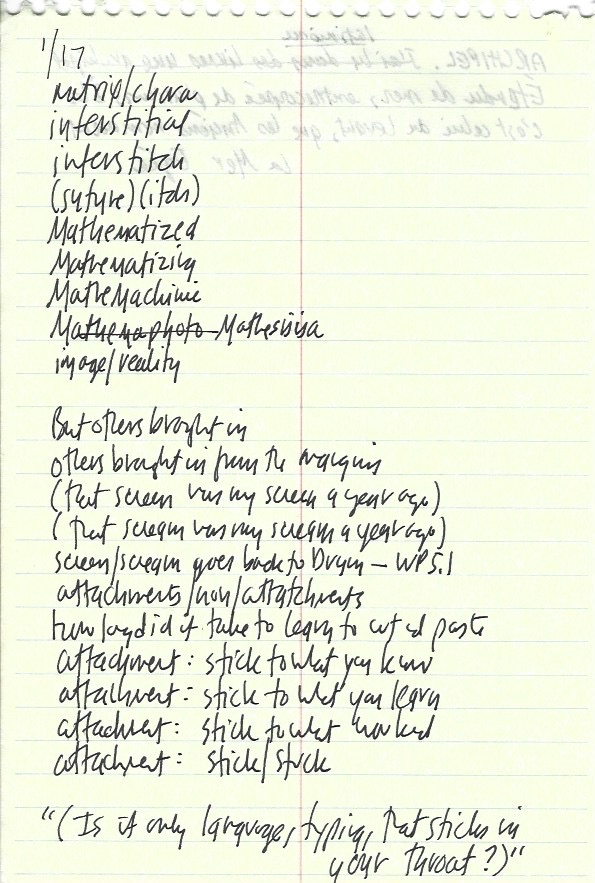 1/17
matrix/chora
interstitial
interstitch
(suture)(itch)
Mathematized
Mathematizing
MatheMachinic
Mathemaphoto Mathesisisa
image/reality
But others brought in
others brought in from the margins
(that screen was my screen a year ago)
(that scream was my scream a year ago)
screen/scream goes back to – WP5.1
attachments/non/attatchments
how long did it take to learn to cut and paste
attachment: stick to what you know
attachment: stick to what you learn
attachment: stick to what worked
attachment: stick/stuck
"(Is it only language, typing, that sticks in
your throat?)"